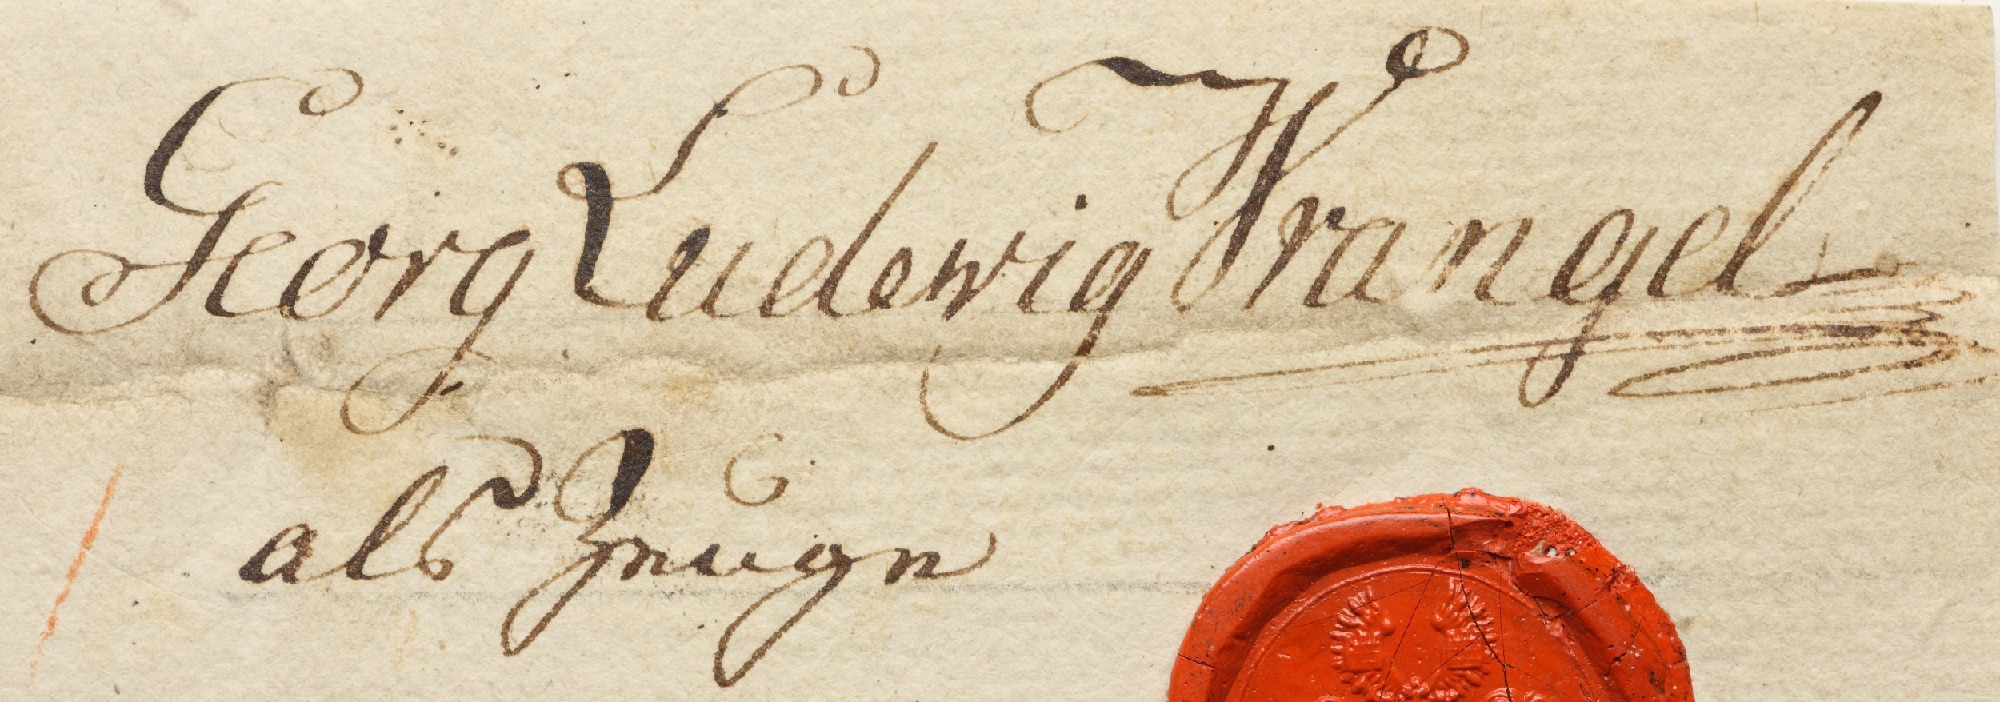 Georg Ludewig Wrangel
als Zeuge